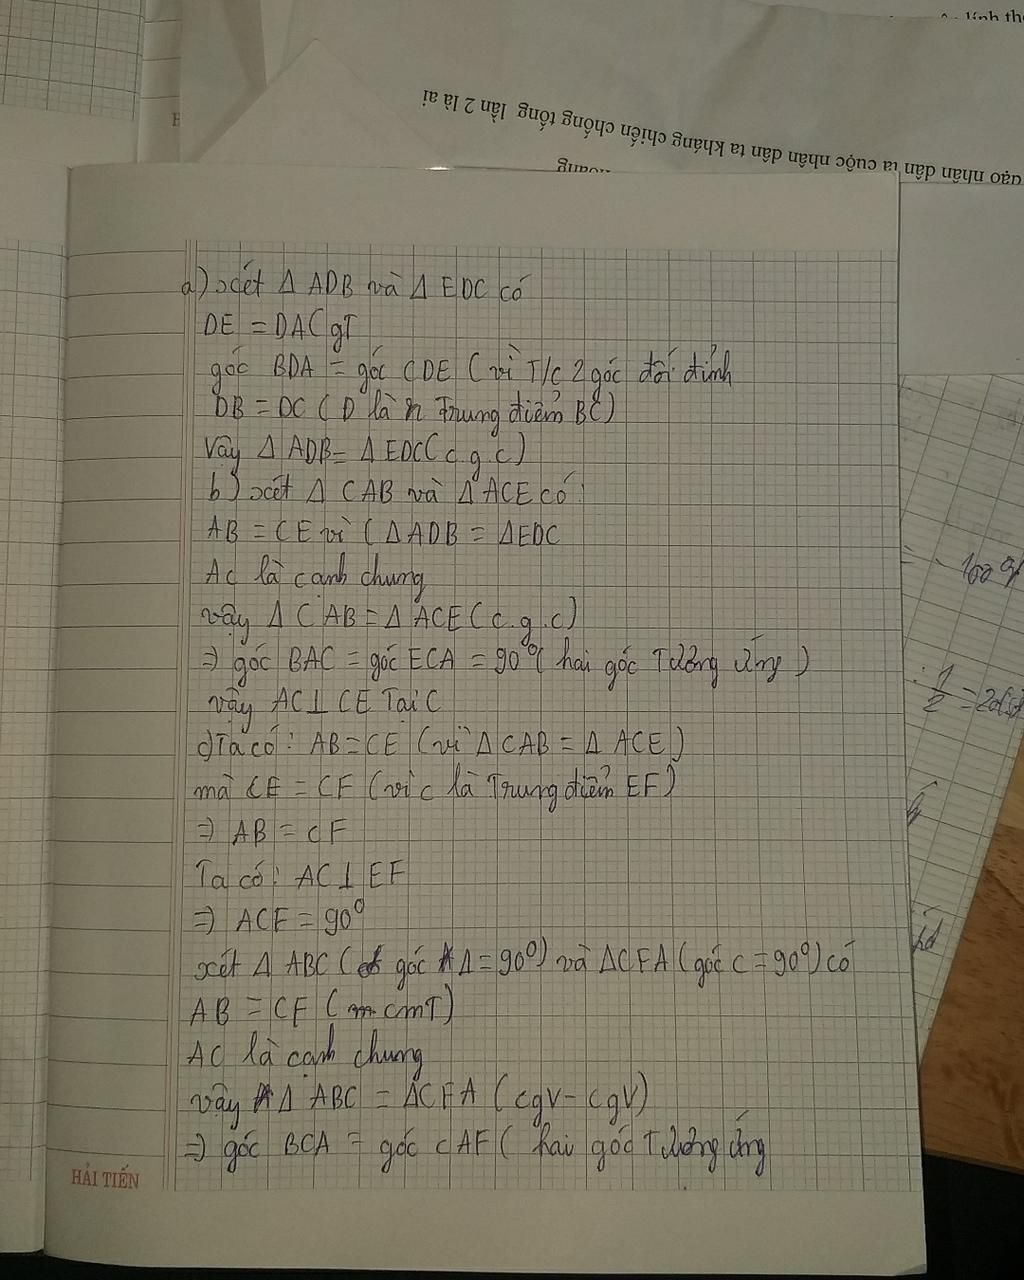 lính th
đạo nhân dân ta cuộc nhân dân ta kháng chiến chống tống lần 2 là ai
hoang
a) xét Δ ADB và Δ EDC có
DE = DA( gT
góc BDA = góc CDE ( vì T/c 2 góc đối đỉnh
DB = DC ( D là Trung điểm BC)
Vậy Δ ADB = Δ EDC( c.g.c)
b) xét Δ CAB và Δ ACE có :
AB = CE vì ( Δ ADB = Δ EDC
AC là cạnh chung
vậy Δ CAB = Δ ACE ( c.g.c)
=> góc BAC = góc ECA = 90⁰( hai góc Tương ứng )
vậy AC⊥ CE Tại C
c) Ta có : AB = CE ( vì Δ CAB = Δ ACE )
mà CE = CF ( vì c là Trung điểm EF )
=> AB = CF
Ta có : AC⊥ EF
=> ACF = 90⁰
xét Δ ABC ( góc Δ = 90⁰) và Δ CFA ( góc c = 90⁰) có
AB = CF ( cmT )
AC là cạnh chung
vậy Δ ABC = Δ CFA ( cgv - cgv )
=> góc BCA = góc cAF ( hai góc Tương ứng
HẢI TIẾN